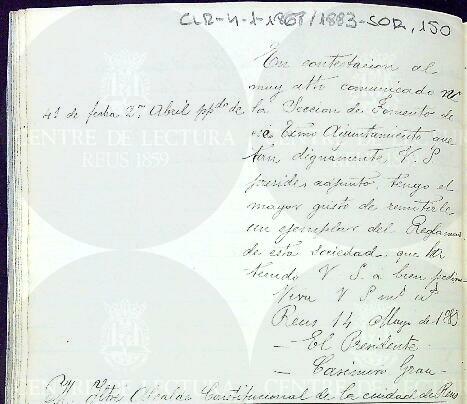 CLR-4-1-1868/1883-SOR, 150
En contestacion al
muy atto comunicado nº
41 de fecha 2 Abril ppdo de la Seccion de Fomento de
ese Exmo Ayuntamiento que
tan dignamente V. S
preside adjunto tengo el
mayor gusto de remitirle
un ejemplar del Reglamto
de esta sociedad que ha
tenido V S. a bien pedirme
Viva V S ms as
Reus 14 Mayo de 1883
- El Presidente -
- Casimiro Grau -
M. Iltre Alcalde Constitucional de la ciudad de Reus
CENTRE DE LECTURA
REUS 1859